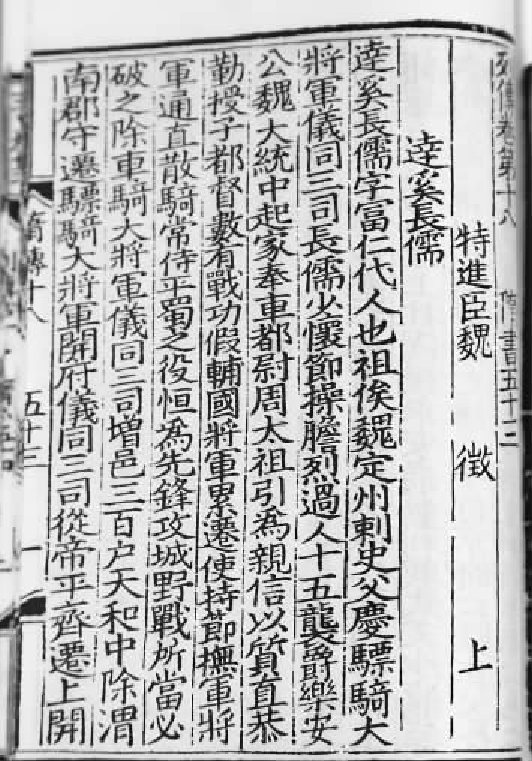 列傳卷第十八 隋書五十三
特進臣魏 徵 上
達奚長儒
達奚長儒字富仁代人也祖俟魏定州刺史父慶驃騎大
將軍儀同三司長儒少懷節操膽烈過人十五襲爵樂安
公魏大統中起家奉車都尉周太祖引爲親信以質直恭
勤授子都督數有戰功假輔國將軍累遷使持節撫軍將
軍通直散騎常侍平蜀之役恒為先鋒攻城野戰所當必
破之除車騎大將軍儀同三司增邑三百户天和中除渭
南郡守遷驃騎大將軍開府儀同三司從帝平齊遷上開
隋傳十八 五十三 一